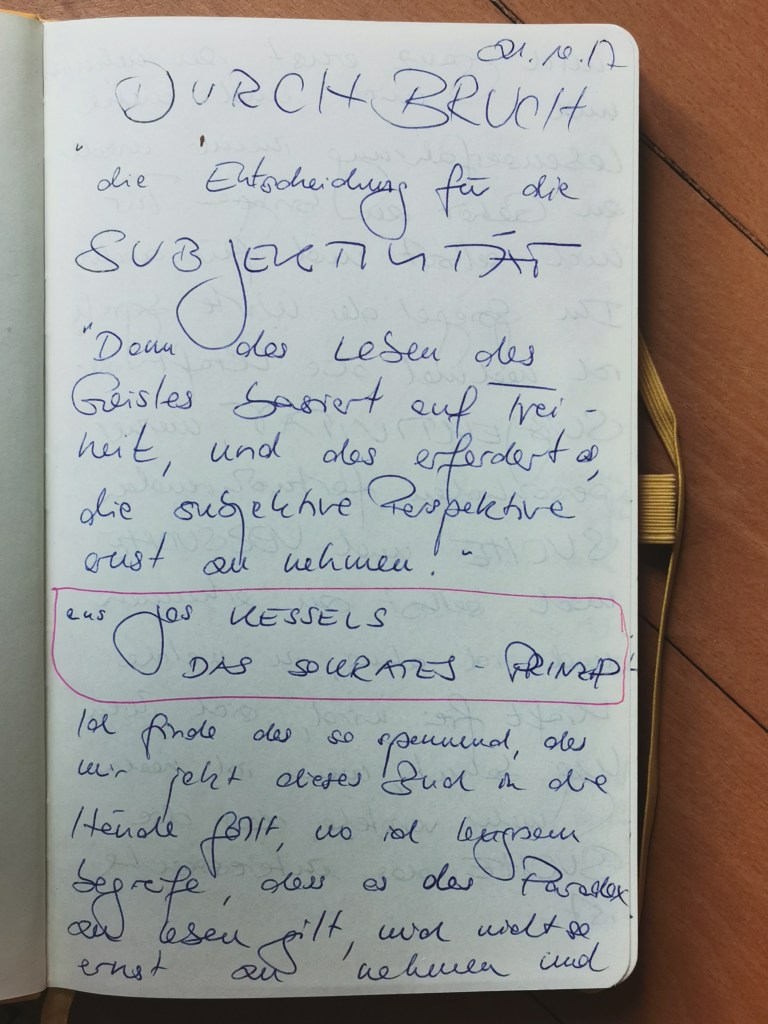 01.10.17
DURCHBRUCH
"die Entscheidung für die
SUBJEKTIVITÄT
"Denn das Leben des
Geistes basiert auf Frei-
heit, und das erfordert es,
die subjektive Perspektive
ernst zu nehmen."
aus Jos KESSELS
DAS SOKRATES-PRINZIP
Ich finde das so spannend, das
mir jetzt dieses Buch in die
Hände fällt, wo ich langsam
begreife, dass es das Paradox
zu leben gilt, mich nicht so
ernst zu nehmen und